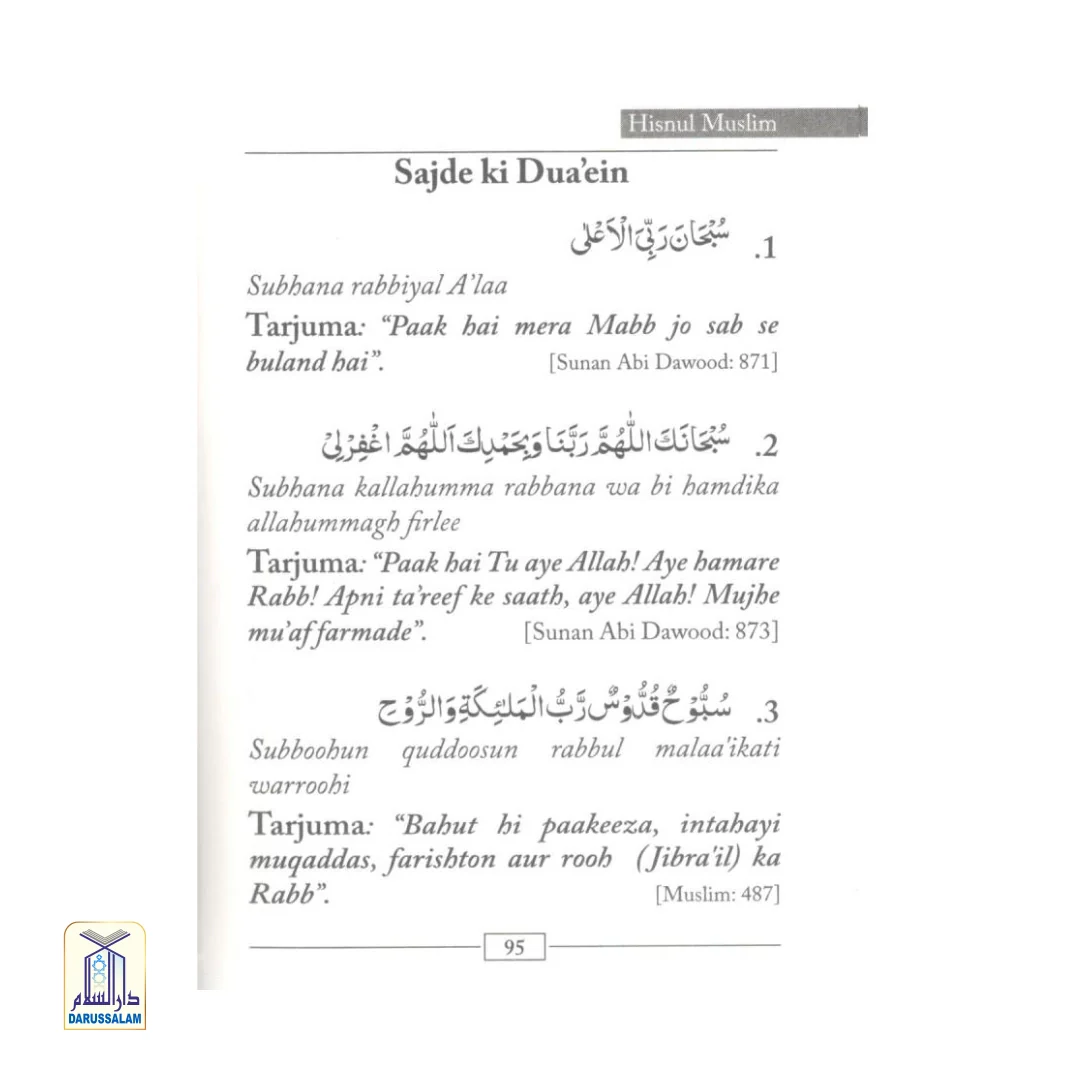 Hisnul Muslim
Sajde ki Dua’ein
1. سُبْحَانَ رَبِّيَ الْاَعْلٰى
Subhana rabbiyal A’laa
Tarjuma: “Paak hai mera Mabb jo sab se
buland hai”. [Sunan Abi Dawood: 871]
2. سُبْحَانَكَ اللّٰهُمَّ رَبَّنَا وَبِحَمْدِكَ اَللّٰهُمَّ اغْفِرْلِيْ
Subhana kallahumma rabbana wa bi hamdika
allahummagh firlee
Tarjuma: “Paak hai Tu aye Allah! Aye hamare
Rabb! Apni ta’reef ke saath, aye Allah! Mujhe
mu’af farmade”. [Sunan Abi Dawood: 873]
3. سُبُّوْحٌ قُدُّوْسٌ رَّبُّ الْمَلٰئِكَةِ وَالرُّوْحِ
Subboohun quddoosun rabbul malaa'ikati
warroohi
Tarjuma: “Bahut hi paakeeza, intahayi
muqaddas, farishton aur rooh (Jibra'il) ka
Rabb”. [Muslim: 487]
95
دارالسلام
DARUSSALAM